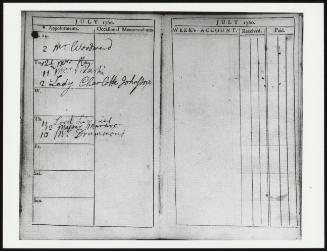 JULY 1760.
Appointments. Occasional Memorandums
2 Mr Woodward
11 Mrs
12 Lady Charlotte Johnston
W.
Th.
11 Lord
12 Major
10 Mr Drummond
Fr.
Sat.
Sun.
JULY 1760.
WEEK'S ACCOUNT. Received. Paid.